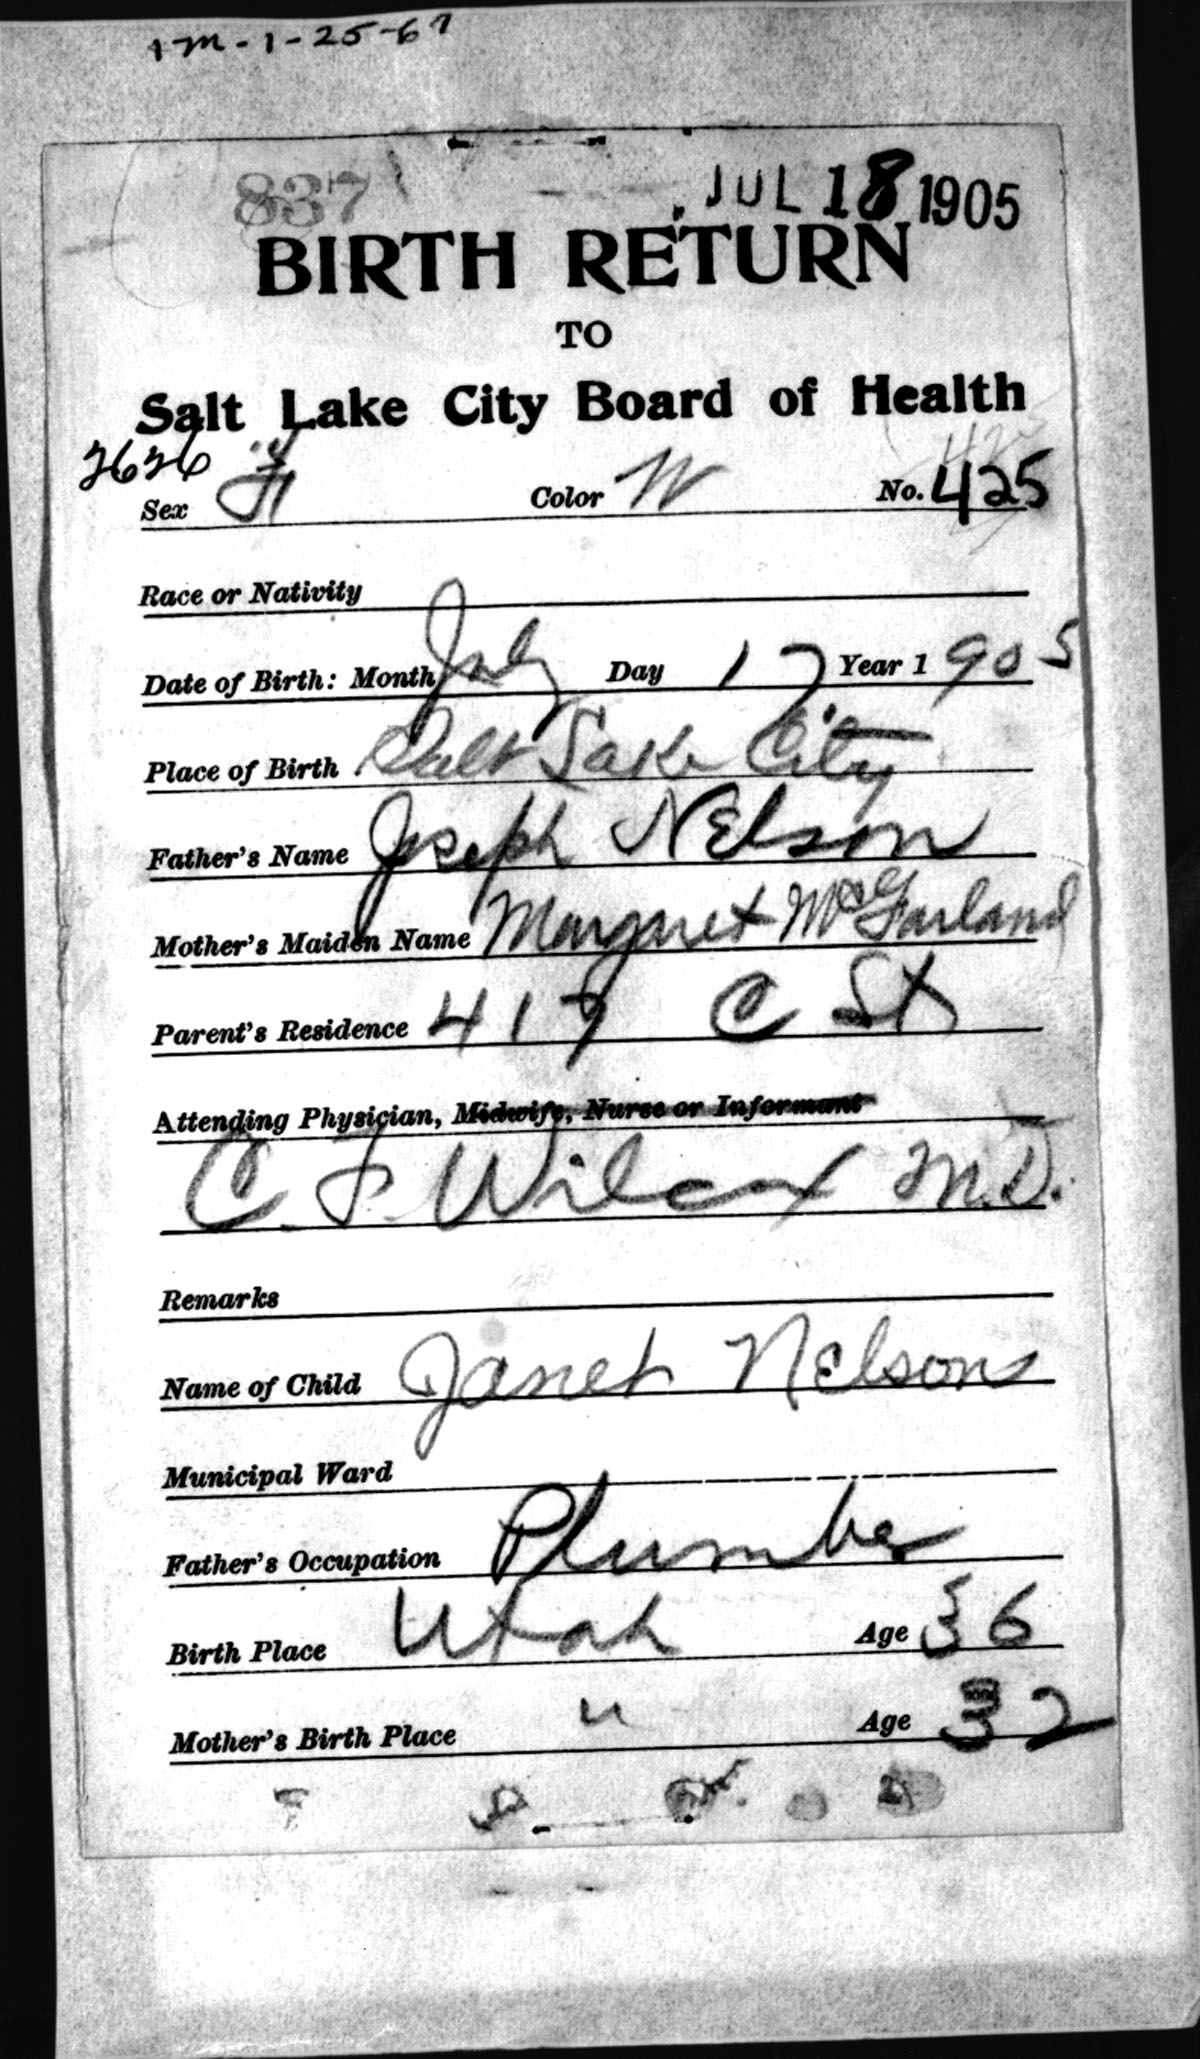 1m-1-25-67
837 JUL 18 1905
BIRTH RETURN
TO
Salt Lake City Board of Health
2626
Sex F Color W No. 425
Race or Nativity
Date of Birth: Month July Day 17 Year 1905
Place of Birth Salt Lake City
Father's Name Joseph Nelson
Mother's Maiden Name Margaret McFarland
Parent's Residence 417 C St
Attending Physician, Midwife, Nurse or Informant
C. F. Wilcox M.D.
Remarks
Name of Child Janet Nelson
Municipal Ward
Father's Occupation Plumber
Birth Place Utah Age 36
Mother's Birth Place " Age 32